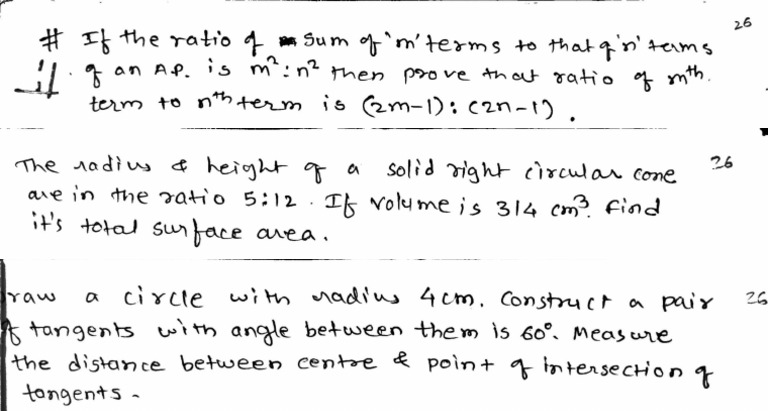 26
# If the ratio of sum of 'm' terms to that of 'n' terms
of an A.P. is m²:n² then prove that ratio of mth
term to nth term is (2m-1):(2n-1).
The radius & height of a solid right circular cone 26
are in the ratio 5:12. If volume is 314 cm³. find
it's total surface area.
raw a circle with radius 4cm. Construct a pair 26
of tangents with angle between them is 60°. Measure
the distance between centre & point of intersection of
tangents.